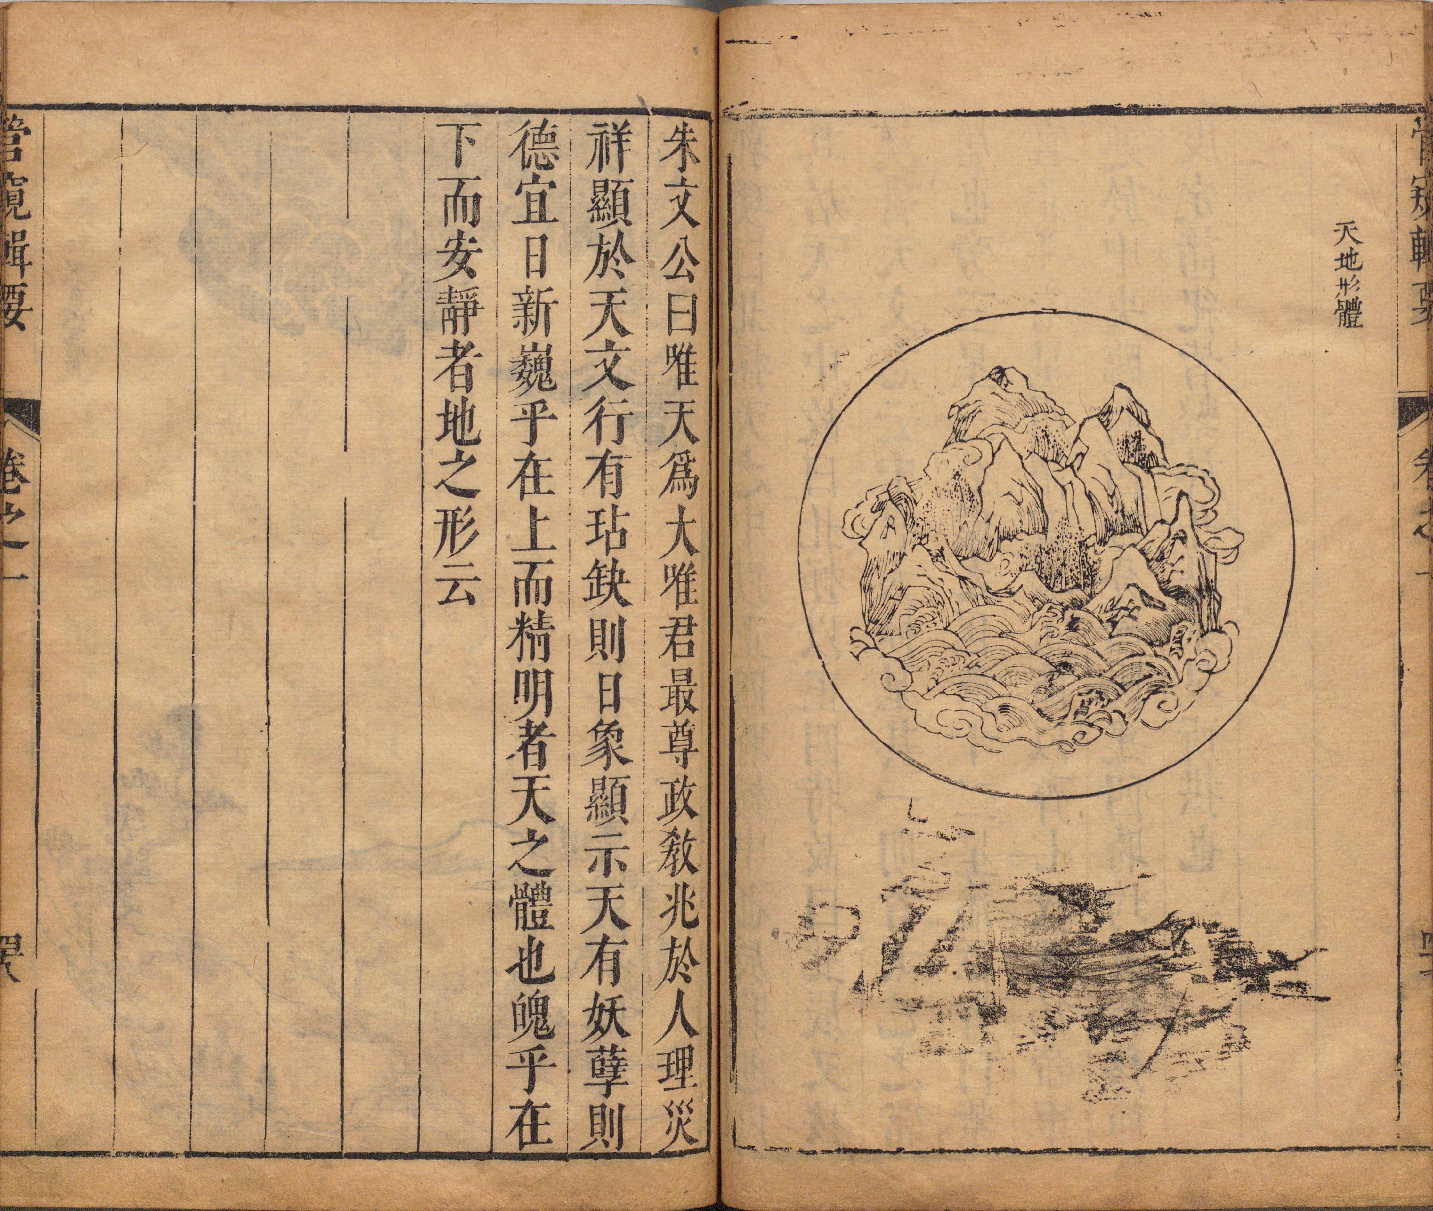 管窺輯要
卷之一
天地形體
朱文公曰唯天爲大唯君最尊政敎兆於人理災
祥顯於天文行有玷缺則日象顯示天有妖孽則
德宜日新巍乎在上而精明者天之體也魄乎在
下而安靜者地之形云
管窺輯要
卷之一